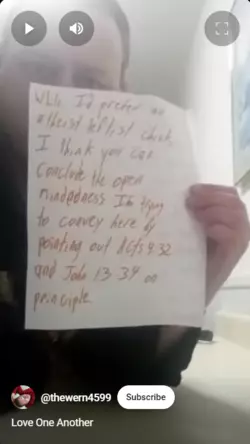 While I'd prefer an
atheist leftist chick,
I think you can
conclude the open
mindedness Im trying
to convey here by
pointing out Acts 4:32
and John 13-34 on
principle
@thewern4599
Subscribe
Love One Another